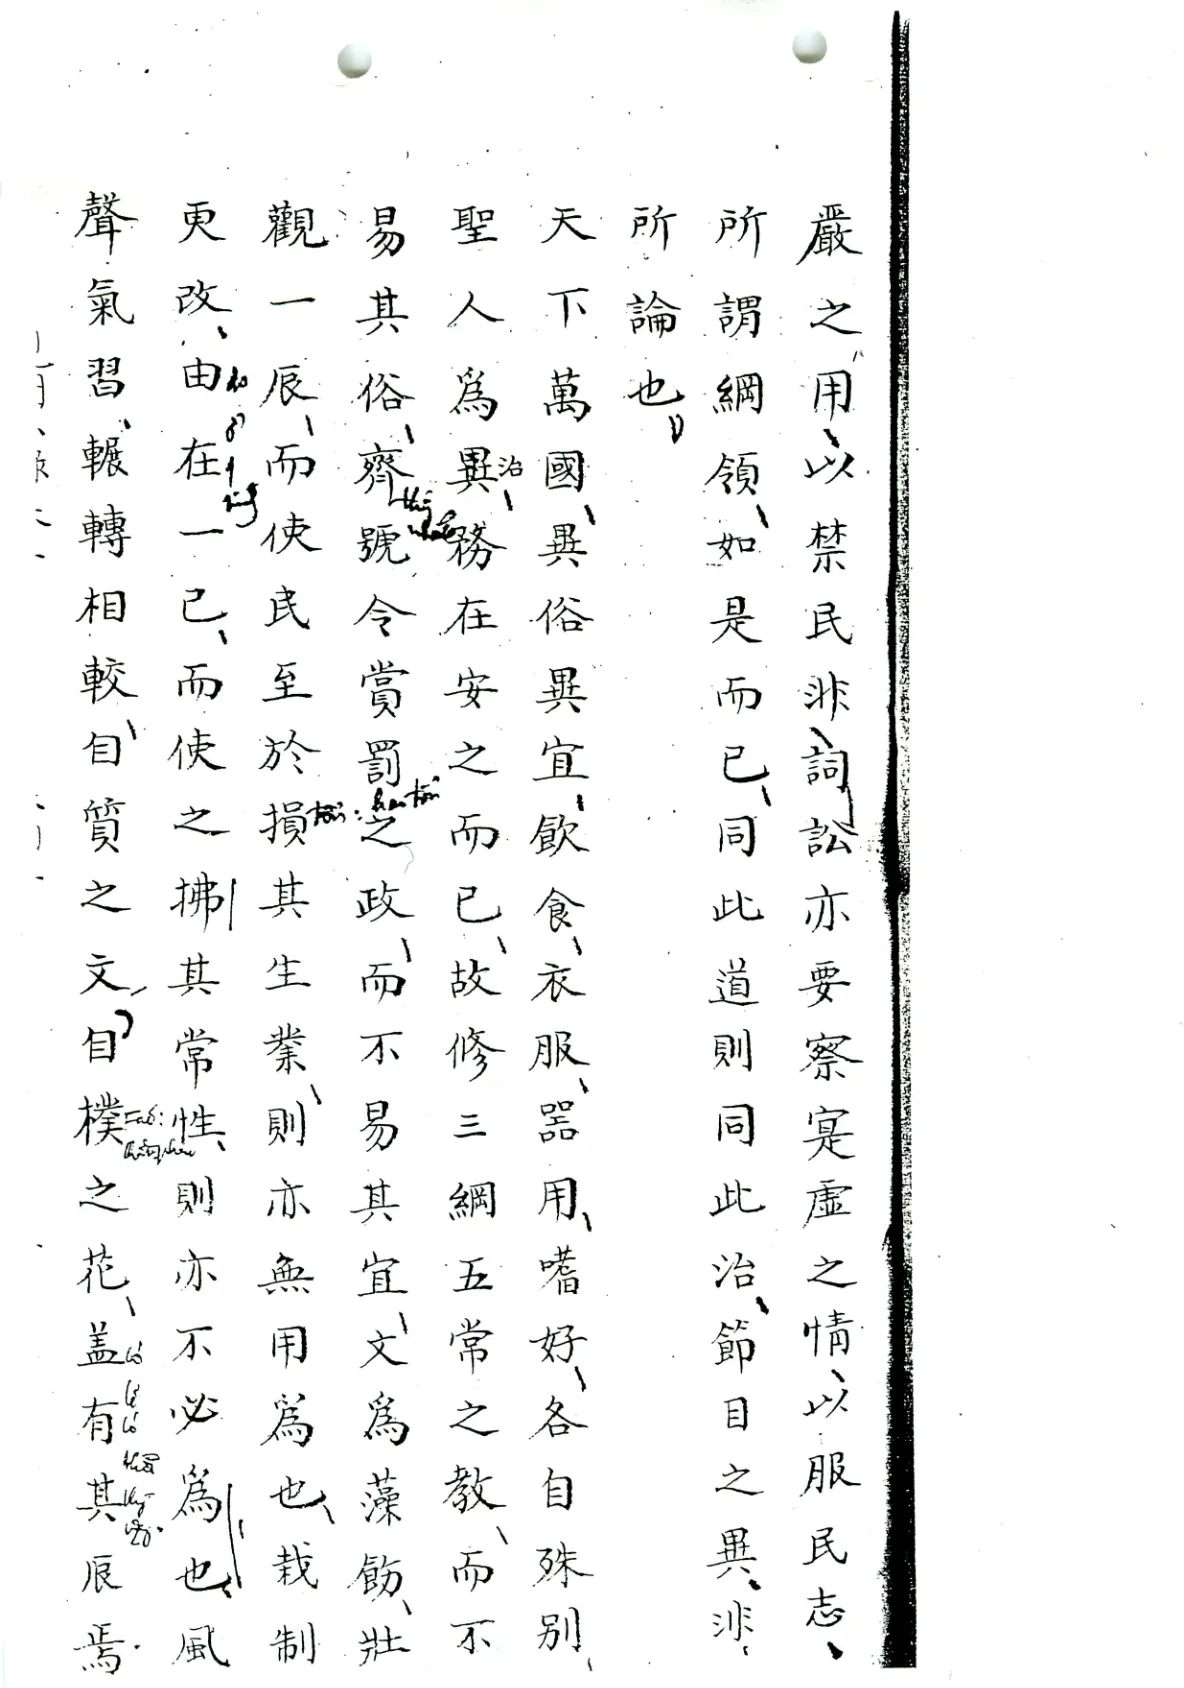 嚴之用以禁民非詞訟亦要察寔虛之情以服民志
所謂綱領如是而已同此道則同此治節目之異非
所論也
天下萬國異俗異宜飲食衣服噐用嗜好各自殊别
聖人爲異治務在安之而已故修三綱五常之教而不
易其俗齊號令賞罰之政而不易其宜文爲藻飭壯
觀一辰而使民至於損其生業則亦無用爲也栽制
更改由在一己而使之拂其常性則亦不必爲也風
聲氣習輾轉相較自質之文自樸之花盖有其辰焉